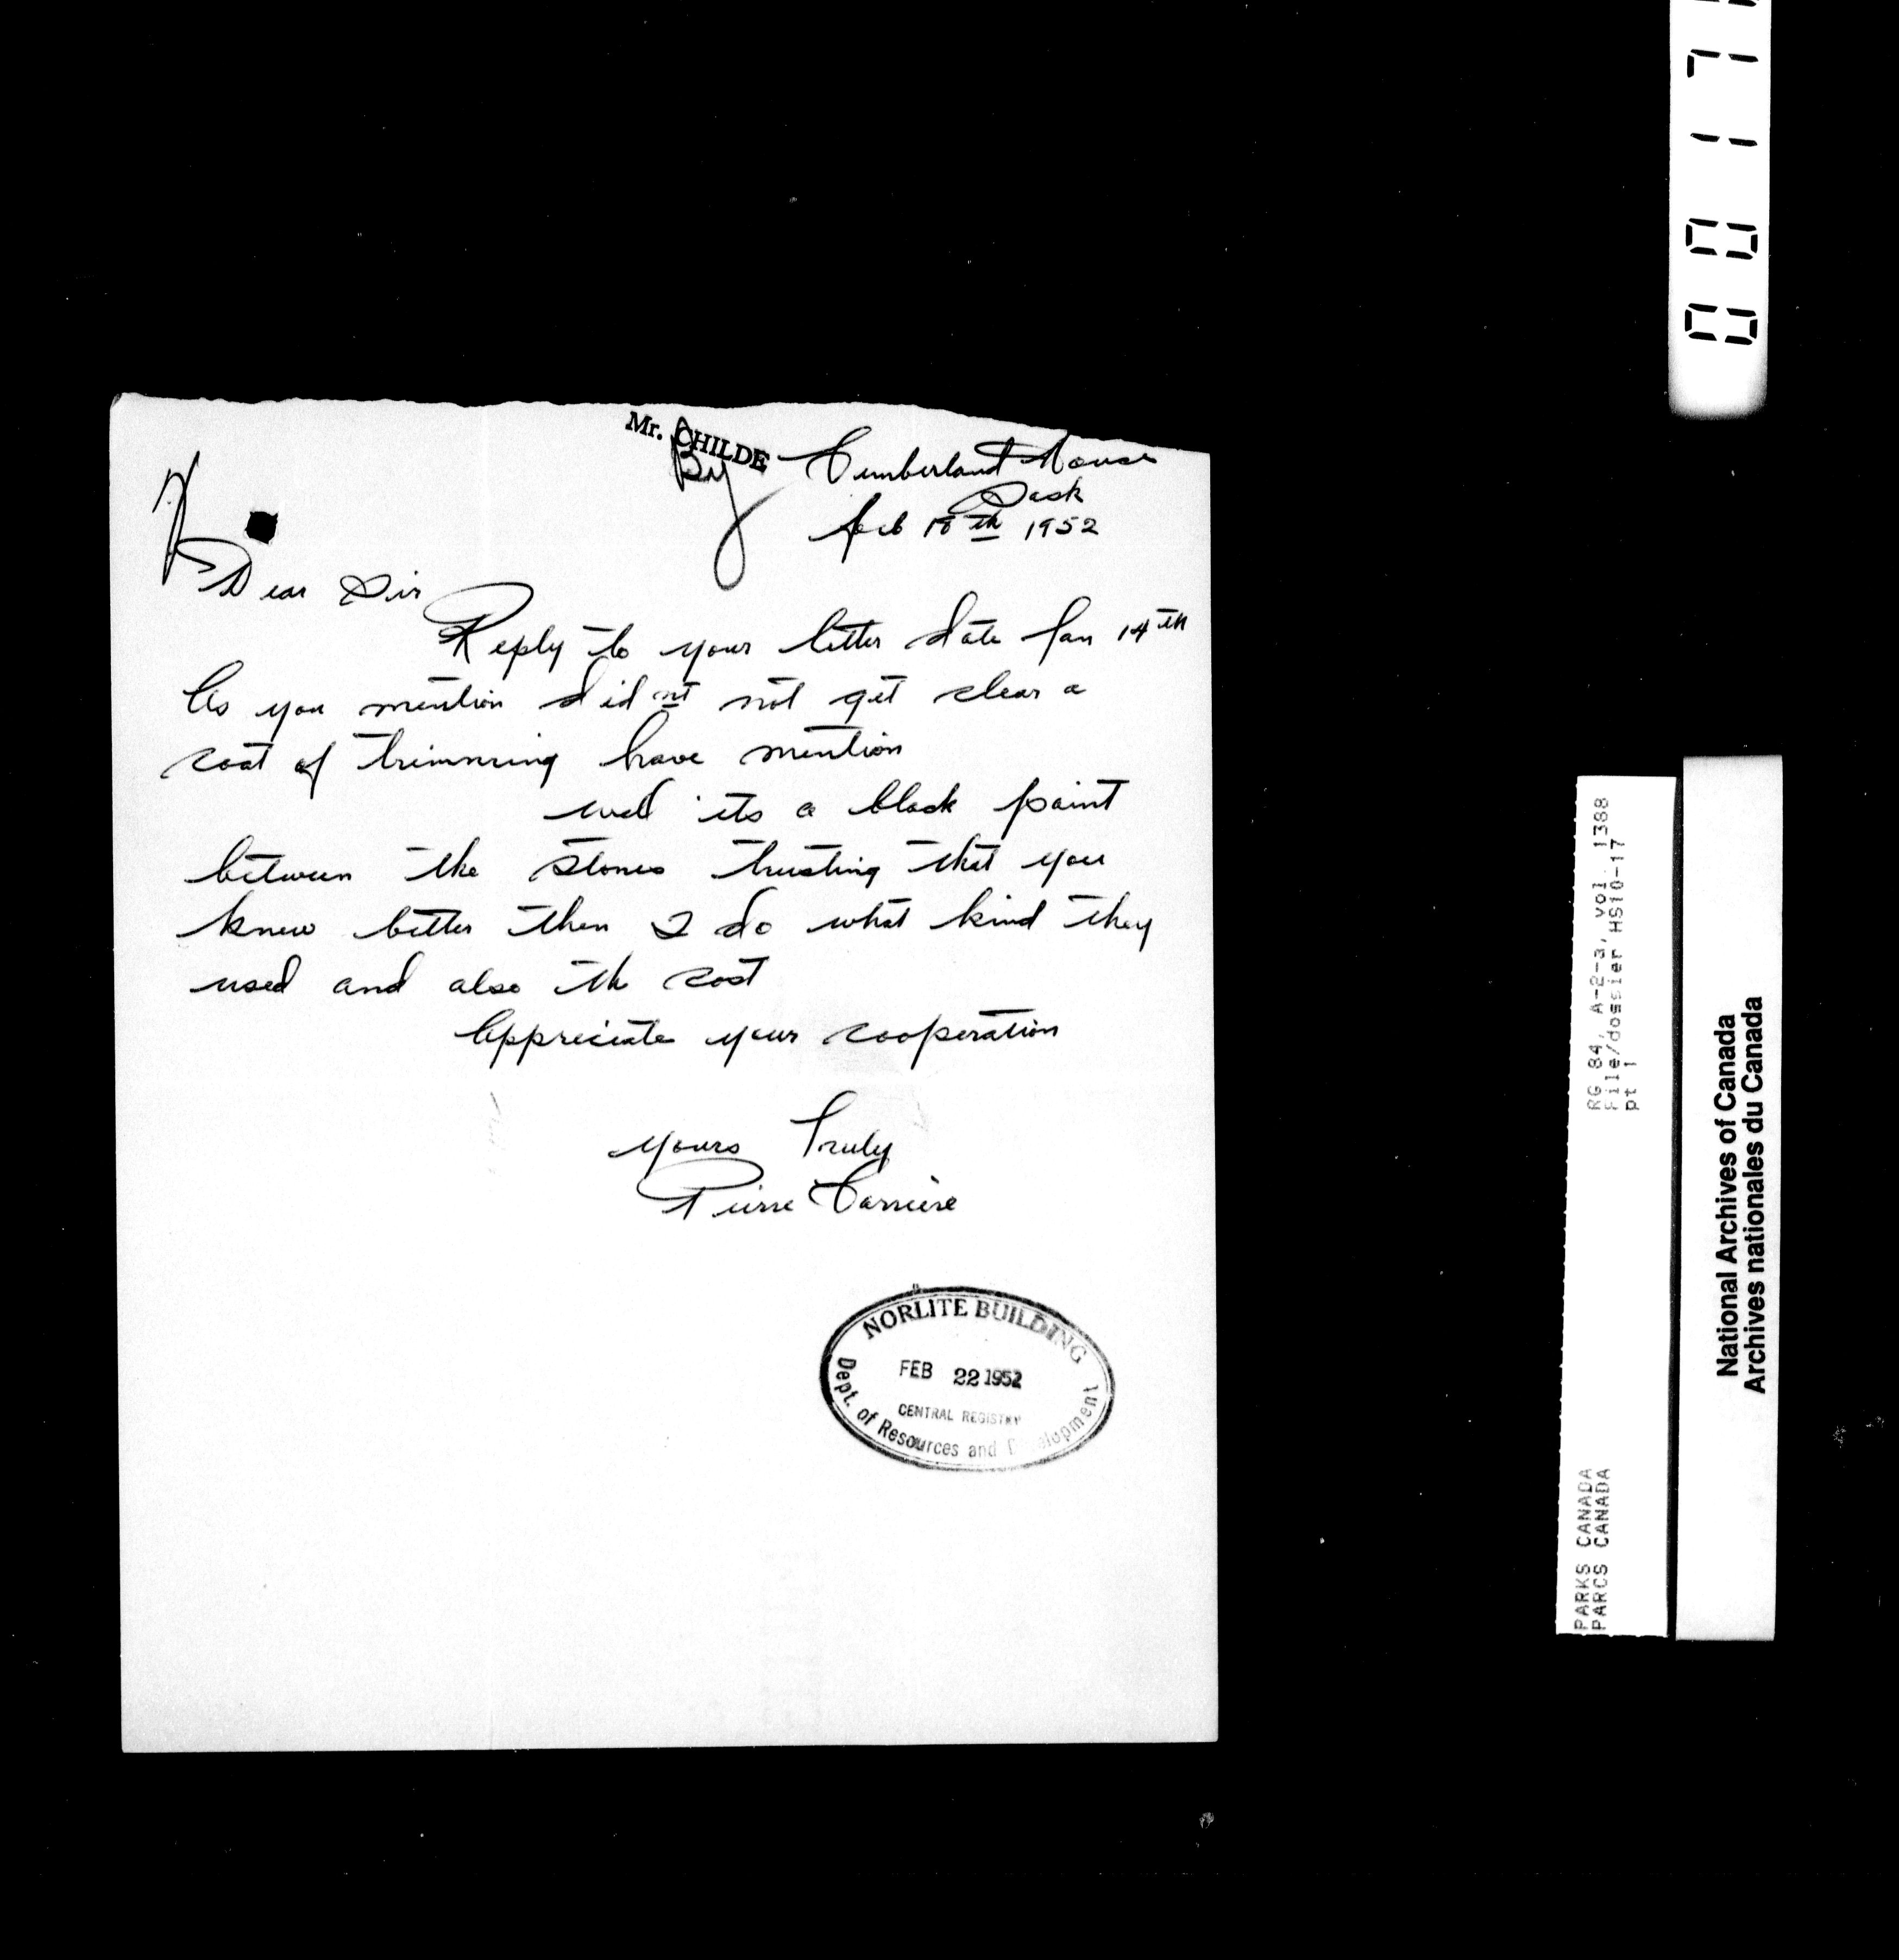 Mr. CHILDE
Cumberland House
Sask
Feb 18th 1952
Dear Sir
Reply to your letter date Jan 14th
As you mention didnt not get clear a
coat of trimming have mention
well its a black paint
between the stones trusting that you
know better then I do what kind they
used and also the cost
Appreciate your cooperation
yours Truly
Pierre Carrière
NORLITE BUILDING
FEB 22 1952
CENTRAL REGISTRY
Dept. of Resources and Development
RG 84, A-2-a, vol. 1388
File/dossier HS10-17
pt 1
PARKS CANADA
PARCS CANADA
National Archives of Canada
Archives nationales du Canada